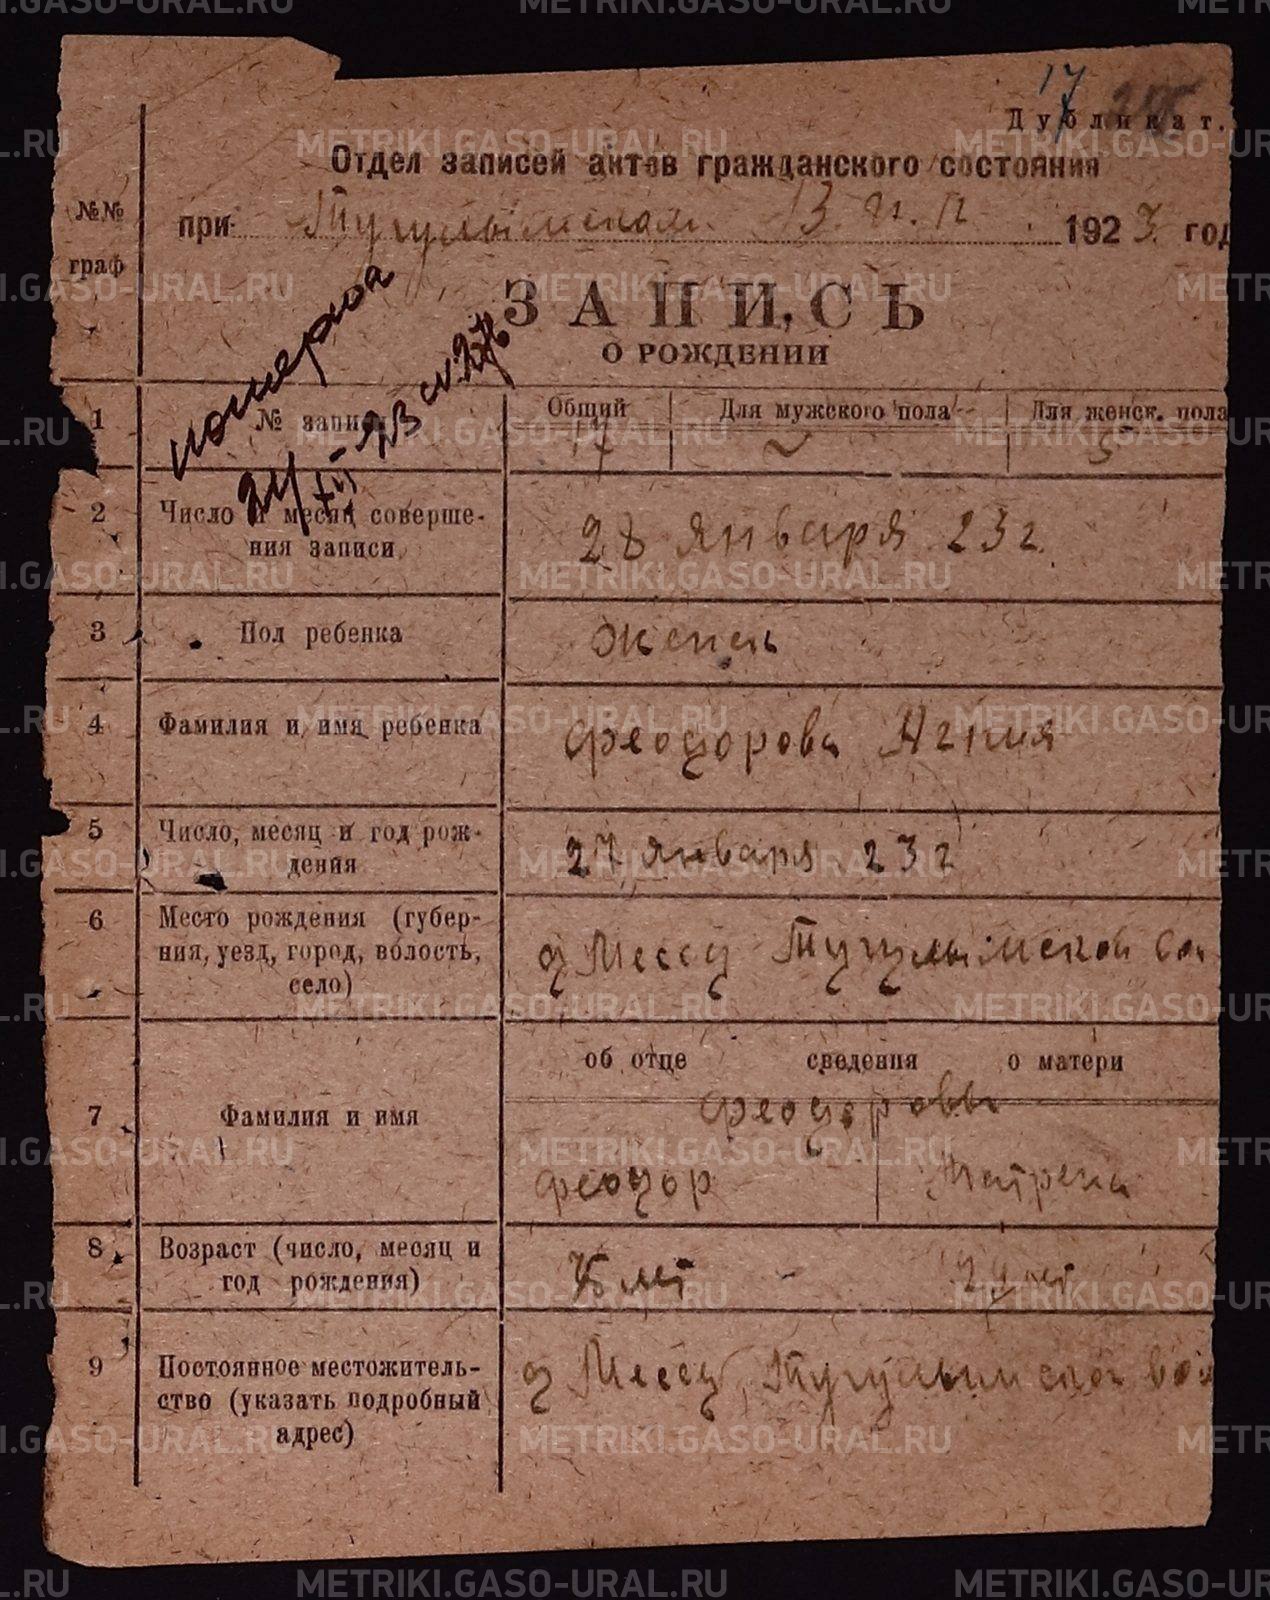 17
Дубликат.
Отдел записей актов гражданского состояния
при Тугулымском В. И. К 1923 год
№№ граф
ЗАПИСЬ
О РОЖДЕНИИ
померла
24/XII-23
1 № записи Общий Для мужского пола Для женск. пола
17 5
2 Число и месяц соверше-
ния записи
28 января 23 г.
3 Пол ребенка
4 Фамилия и имя ребенка
Феодорова Агния
5 Число, месяц и год рож-
дения
27 января 23 г
6 Место рождения (губер-
ния, уезд, город, волость,
село)
д Мессед Тугулымской вол
об отце сведения о матери
7 Фамилия и имя
Феодоровы
Феодор Матрена
8 Возраст (число, месяц и
год рождения)
лет лет
9 Постоянное местожитель-
ство (указать подробный
адрес)
д Мессед, Тугулымской вол
METRIKI.GASO-URAL.RU